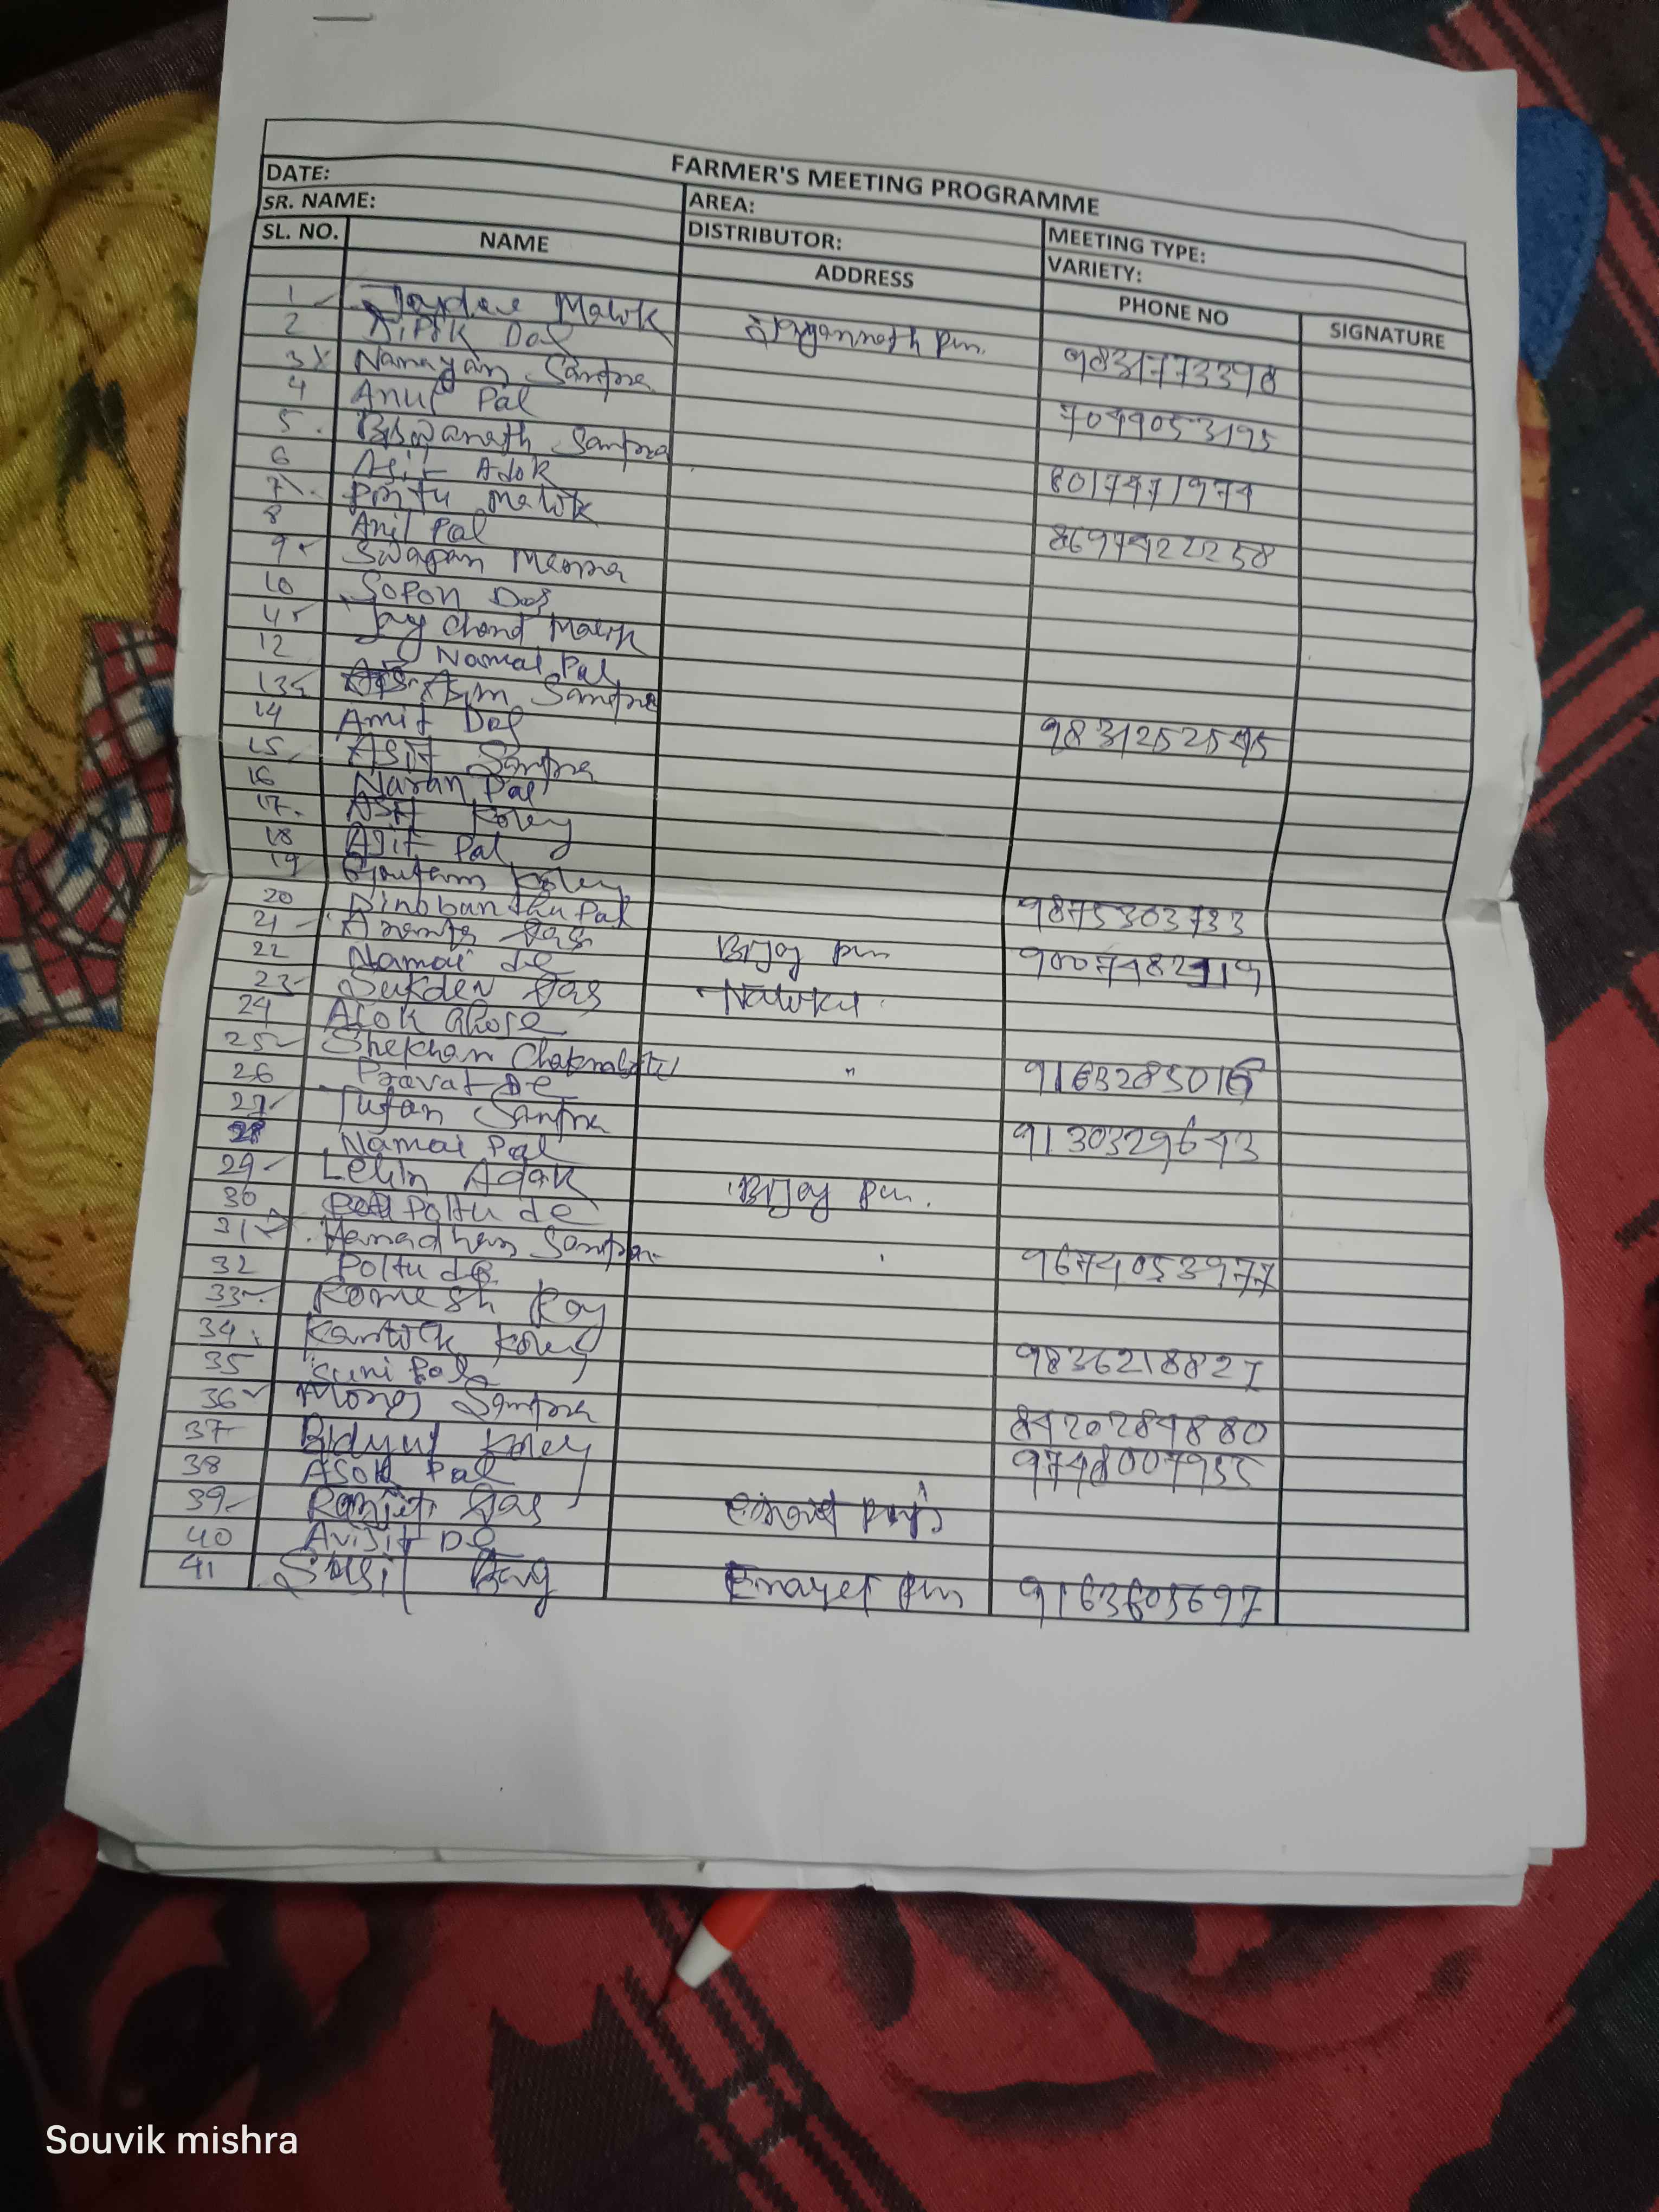 FARMER'S MEETING PROGRAMME
DATE: AREA: MEETING TYPE:
SR. NAME: DISTRIBUTOR: VARIETY:
SL. NO. NAME ADDRESS PHONE NO SIGNATURE
1 Malik 9831773398
2 Dipok Das
3 Narayan Santra 7044053195
4 Anup Pal
5 Biswanath Santra 8017471974
6 Asit Adok
7 Pintu Malik 8697422258
8 Anil Pal
9 Swapan Manna
10 Sopon Das
11 Joy Chand Malik
12 Namai Pal
13 Asim Santra 9831252545
14 Amit Das
15 Asit Santra
16 Naran Pal
17 Asit Koley
18 Ajit Pal
19 Goutam Koley 9875303733
20 Dinobandhu Pal
21 Das Bijoy pur
22 Namai de
23 Sukdev Das
24 Asok Ghose
25 Shekhar " 9163285016
26 Pravat De
27 Tufan Santra 9130329643
28 Namai Pal
29 Lelin Adak Bijoy pur.
30 Poltu de
31 Haradhan Santra 9674053977
32 Poltu de
33 Romesh Roy
34 Kartick Koley 9836218827
35 Pal
36 Monoj Santra 8420284880
37 Bidyut Koley 9748007955
38 Asok Pal
39 Ranjit Das
40 Avijit De
41 Bag Enayet pur 9163605697
Souvik mishra